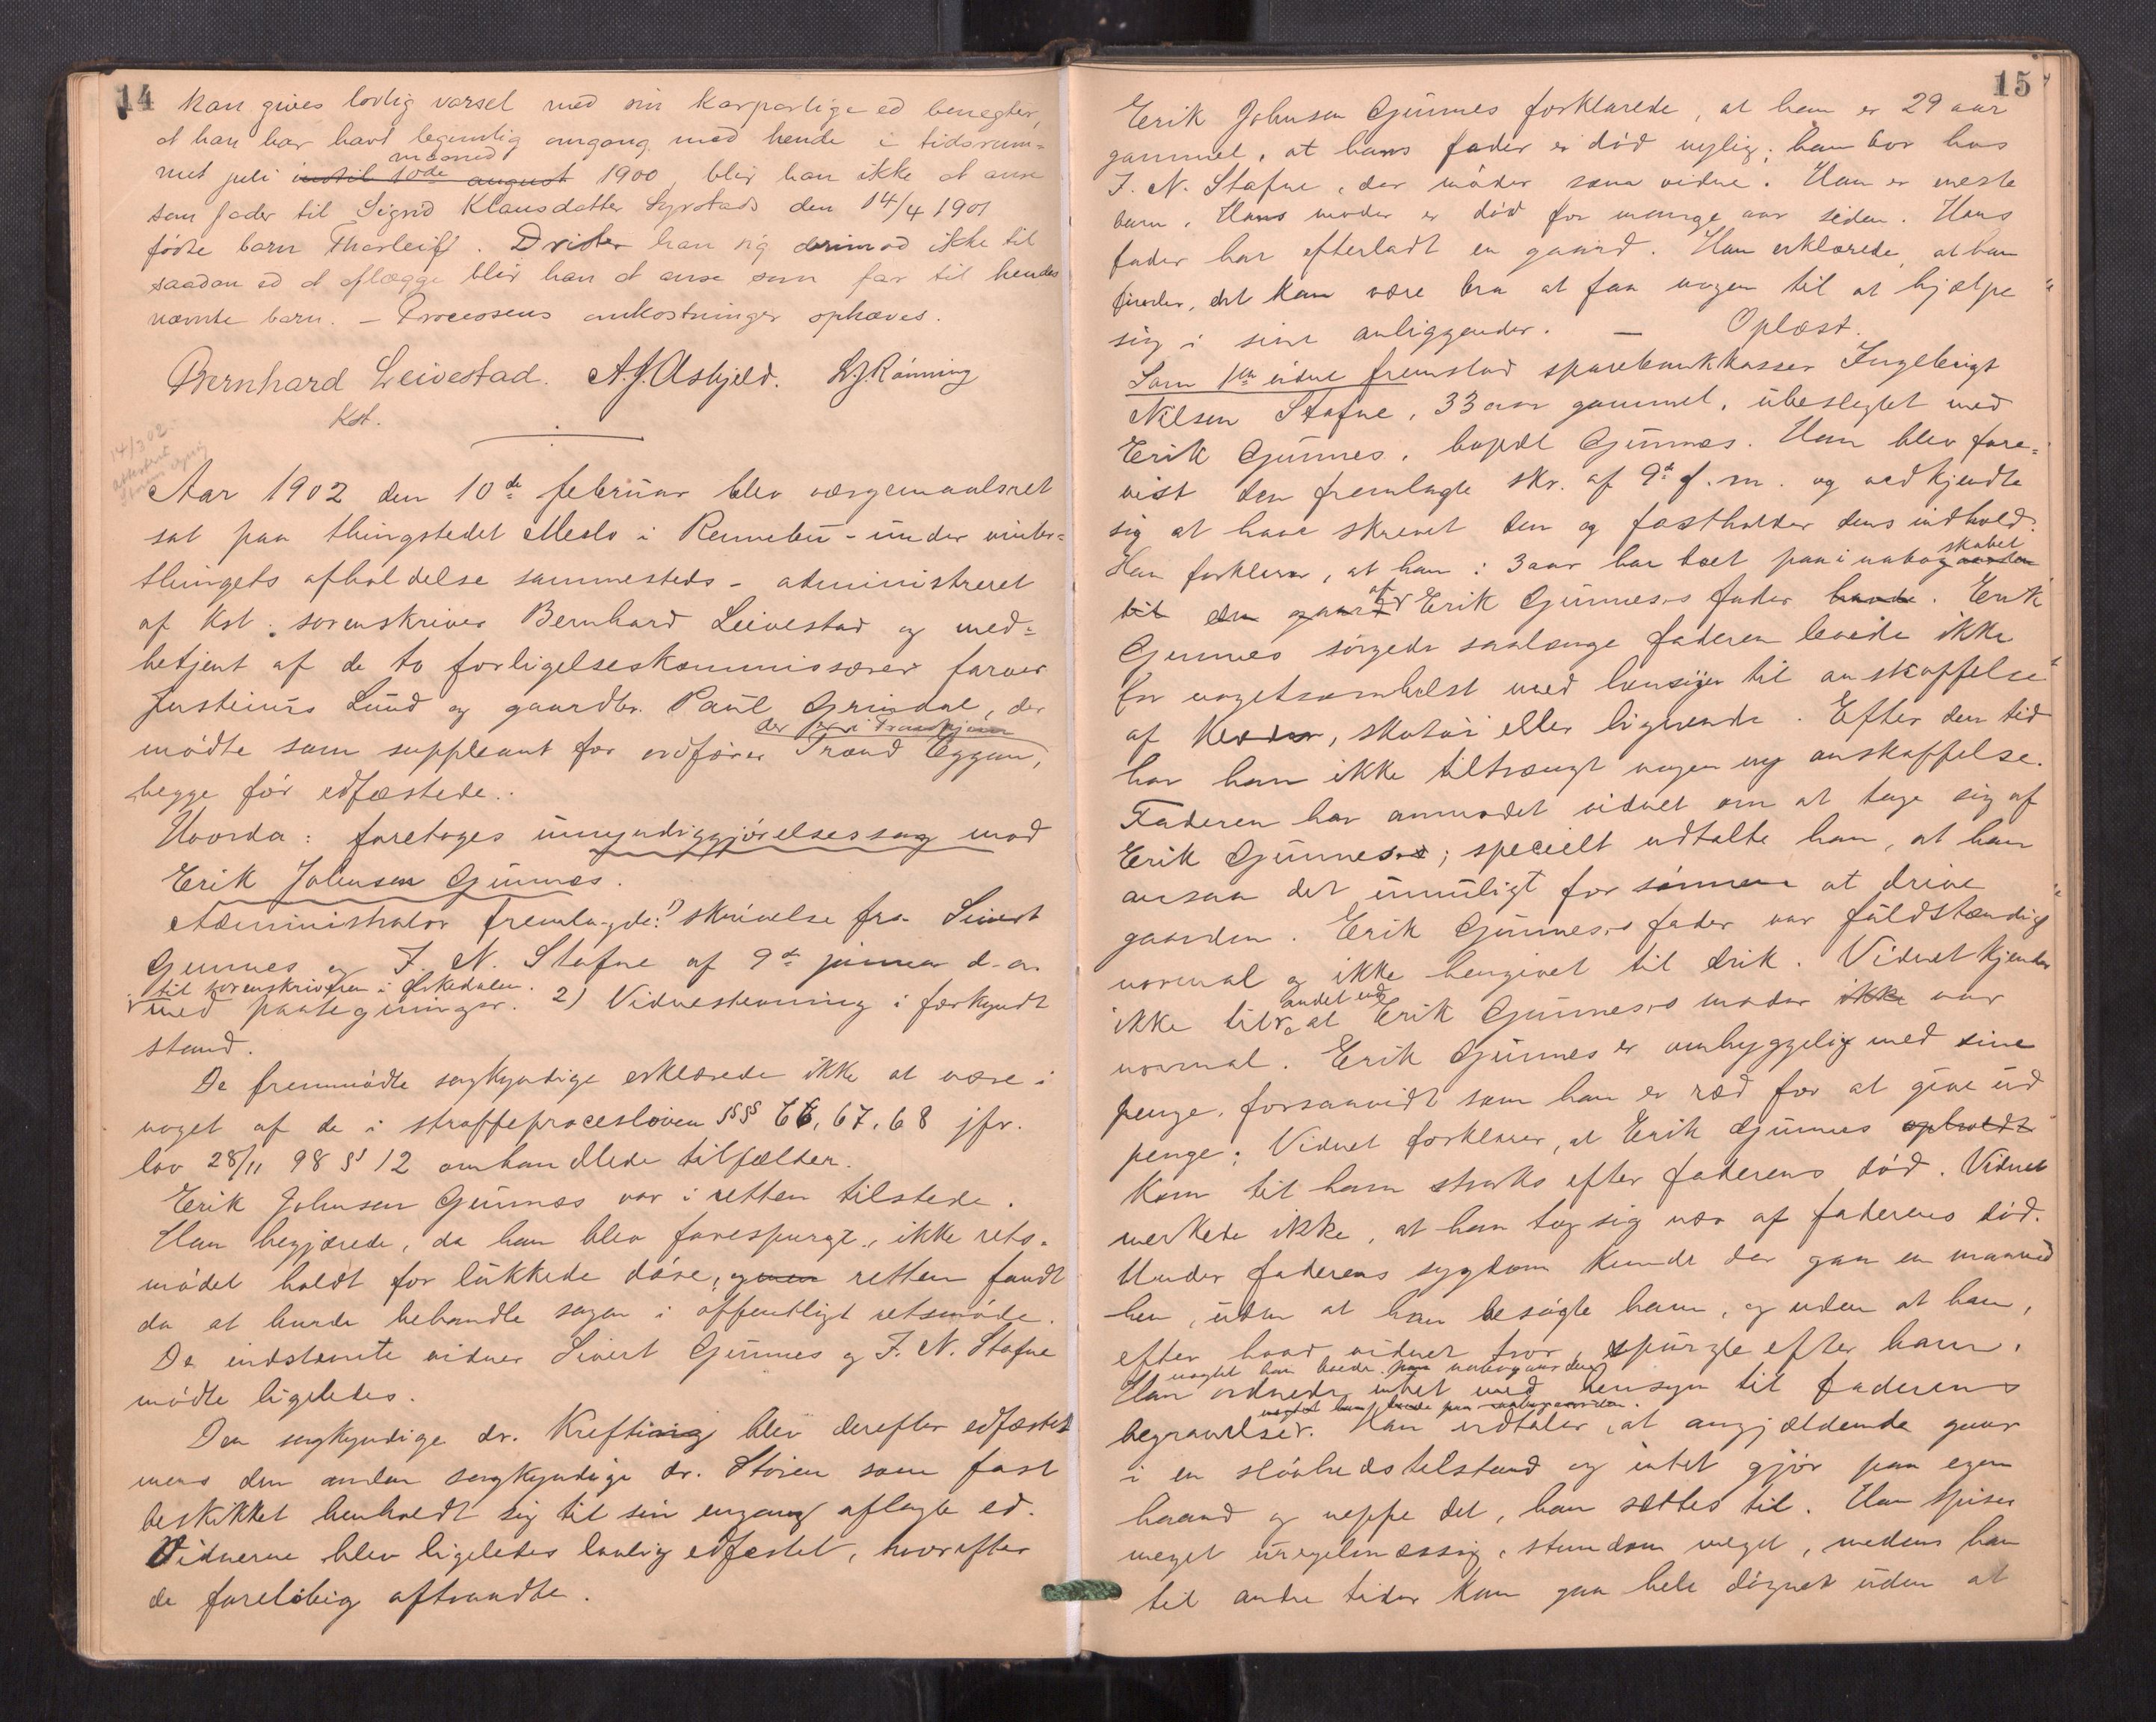 14
kan gives lovlig varsel med sin korporlige ed benegter,
at han har havt legemlig omgang med hende i tidsrum-
maaned
met juli indtil 10de august 1900, blir han ikke at anse
som fader til Sigrid Klausdatter Gyvstads den 14/4 1901
fødte barn Thorleif. Drister han sig derimod ikke til
saadan ed at aflægge blir han at anse som far til hendes
nævnte barn. – Processens omkostninger ophæves.
Bernhard Leivestad. A. J. Asbjeld. L. J. Rønning
Kst.
14/3 02
Aar 1902 den 10de februar blev værgemaalsret
sat paa thingstedet Meslo i Rennebu – under vinter=
thingets afholdelse sammesteds – administreret
af kst. sorenskriver Bernhard Leivestad og med=
betjent af de to forligelseskommissærer farver
Justinus Lund og gaardbr. Paul Grindal, der
der er i Trondhjem
mødte som suppleant for ordfører Trond Eggan,
begge før edfæstede.
Hvorda: foretoges umyndiggjørelsessag mod
Erik Johnsen Gunnes.
Administrator fremlagde: 1) skrivelse fra Sivert
Gunnes og I. N. Stafne af 9de januar d. a.
til sorenskriveren i Orkedalen
med paategninger. 2) Vidnestevning i forkyndt
stand.
De fremmødte sagkyndige erklærede ikke at være i
noget af de i straffeprocesloven §§§ 66, 67, 68 jfr.
lov 28/11 98 § 12 omhandlede tilfælder.
Erik Johnsen Gunnes var i retten tilstede.
Han begjærede, da han blev forespurgt, ikke rets-
mødet holdt for lukkede døre, og men retten fandt
da at burde behandle sagen i offentligt retsmøde.
De indstevnte vidner Sivert Gunnes og I. N. Stafne
mødte ligeledes.
Den sagkyndige dr. Krefting blev derefter edfæstet
mens den anden sagkyndige dr. Støren som fast
beskikket henholdt sig til sin engang aflagte ed.
Vidnerne blev ligeledes lovlig edfæstet, hvorefter
de foreløbig aftraadte.
15
Erik Johnsen Gunnes forklarede, at han er 29 aar
gammel, at hans fader er død nylig; han bor hos
I. N. Stafne, der møder som vidne. Han er eneste
barn. Hans moder er død for mange aar siden. Hans
fader har efterladt en gaard. Han erklærede, at han
finder, det kan være bra at faa nogen til at hjælpe
sig i sine anliggender. – Oplæst.
Som 1ste vidne fremstod sparebankkasser Ingebrigt
Nilsen Stafne, 33 aar gammel, ubeslegtet med
Erik Gunnes, bopæl Gunnes. Han blev fore=
vist den fremlagte skr. af 9de f. m. og vedkjendte
sig at have skrevet den og fastholder dens indhold.
skabet
Han forklarer, at han i 3 aar har boet paa i nabogaarden
af
til den gaard Erik Gunnes's fader havde. Erik
Gunnes sørgede saalænge faderen levede ikke
for nogetsomhelst med hensyn til anskaffelse
af klæder, skotøi eller lignende. Efter den tid
har han ikke tiltrængt nogen ny anskaffelse.
Faderen har anmodet vidnet om at tage sig af
Erik Gunnes; specielt udtalte han, at han
ansaa det umuligt for sønnen at drive
gaarden. Erik Gunnes's fader var fuldstændig
normal og ikke hengivet til drik. Vidnet kjender
andet end
ikke til at Erik Gunnes's moder ikke var
normal. Erik Gunnes er omhyggelig med sine
penge, forsaavidt som han er ræd for at give ud
penge; Vidnet forklarer, at Erik Gunnes opholdt
kom til ham straks efter faderens død. Vidnet
merkede ikke, at han tog sig nær af faderens død.
Under faderens sygdom kunde der gaa en maaned
hen, uden at han besøgte ham, og uden at han,
efter hvad vidnet tror, spurgte efter ham,
uagtet han boede paa nabogaarden
Han ordnede intet med hensyn til faderens
uagtet han boede paa nabogaarden.
begravelse. Han udtaler, at angjældende gaar
i en sløvhedstilstand og intet gjør paa egen
haand og neppe det, han sættes til. Han spiser
meget uregelmæssig, stundom meget, medens han
til andre tider kan gaa hele døgnet uden at